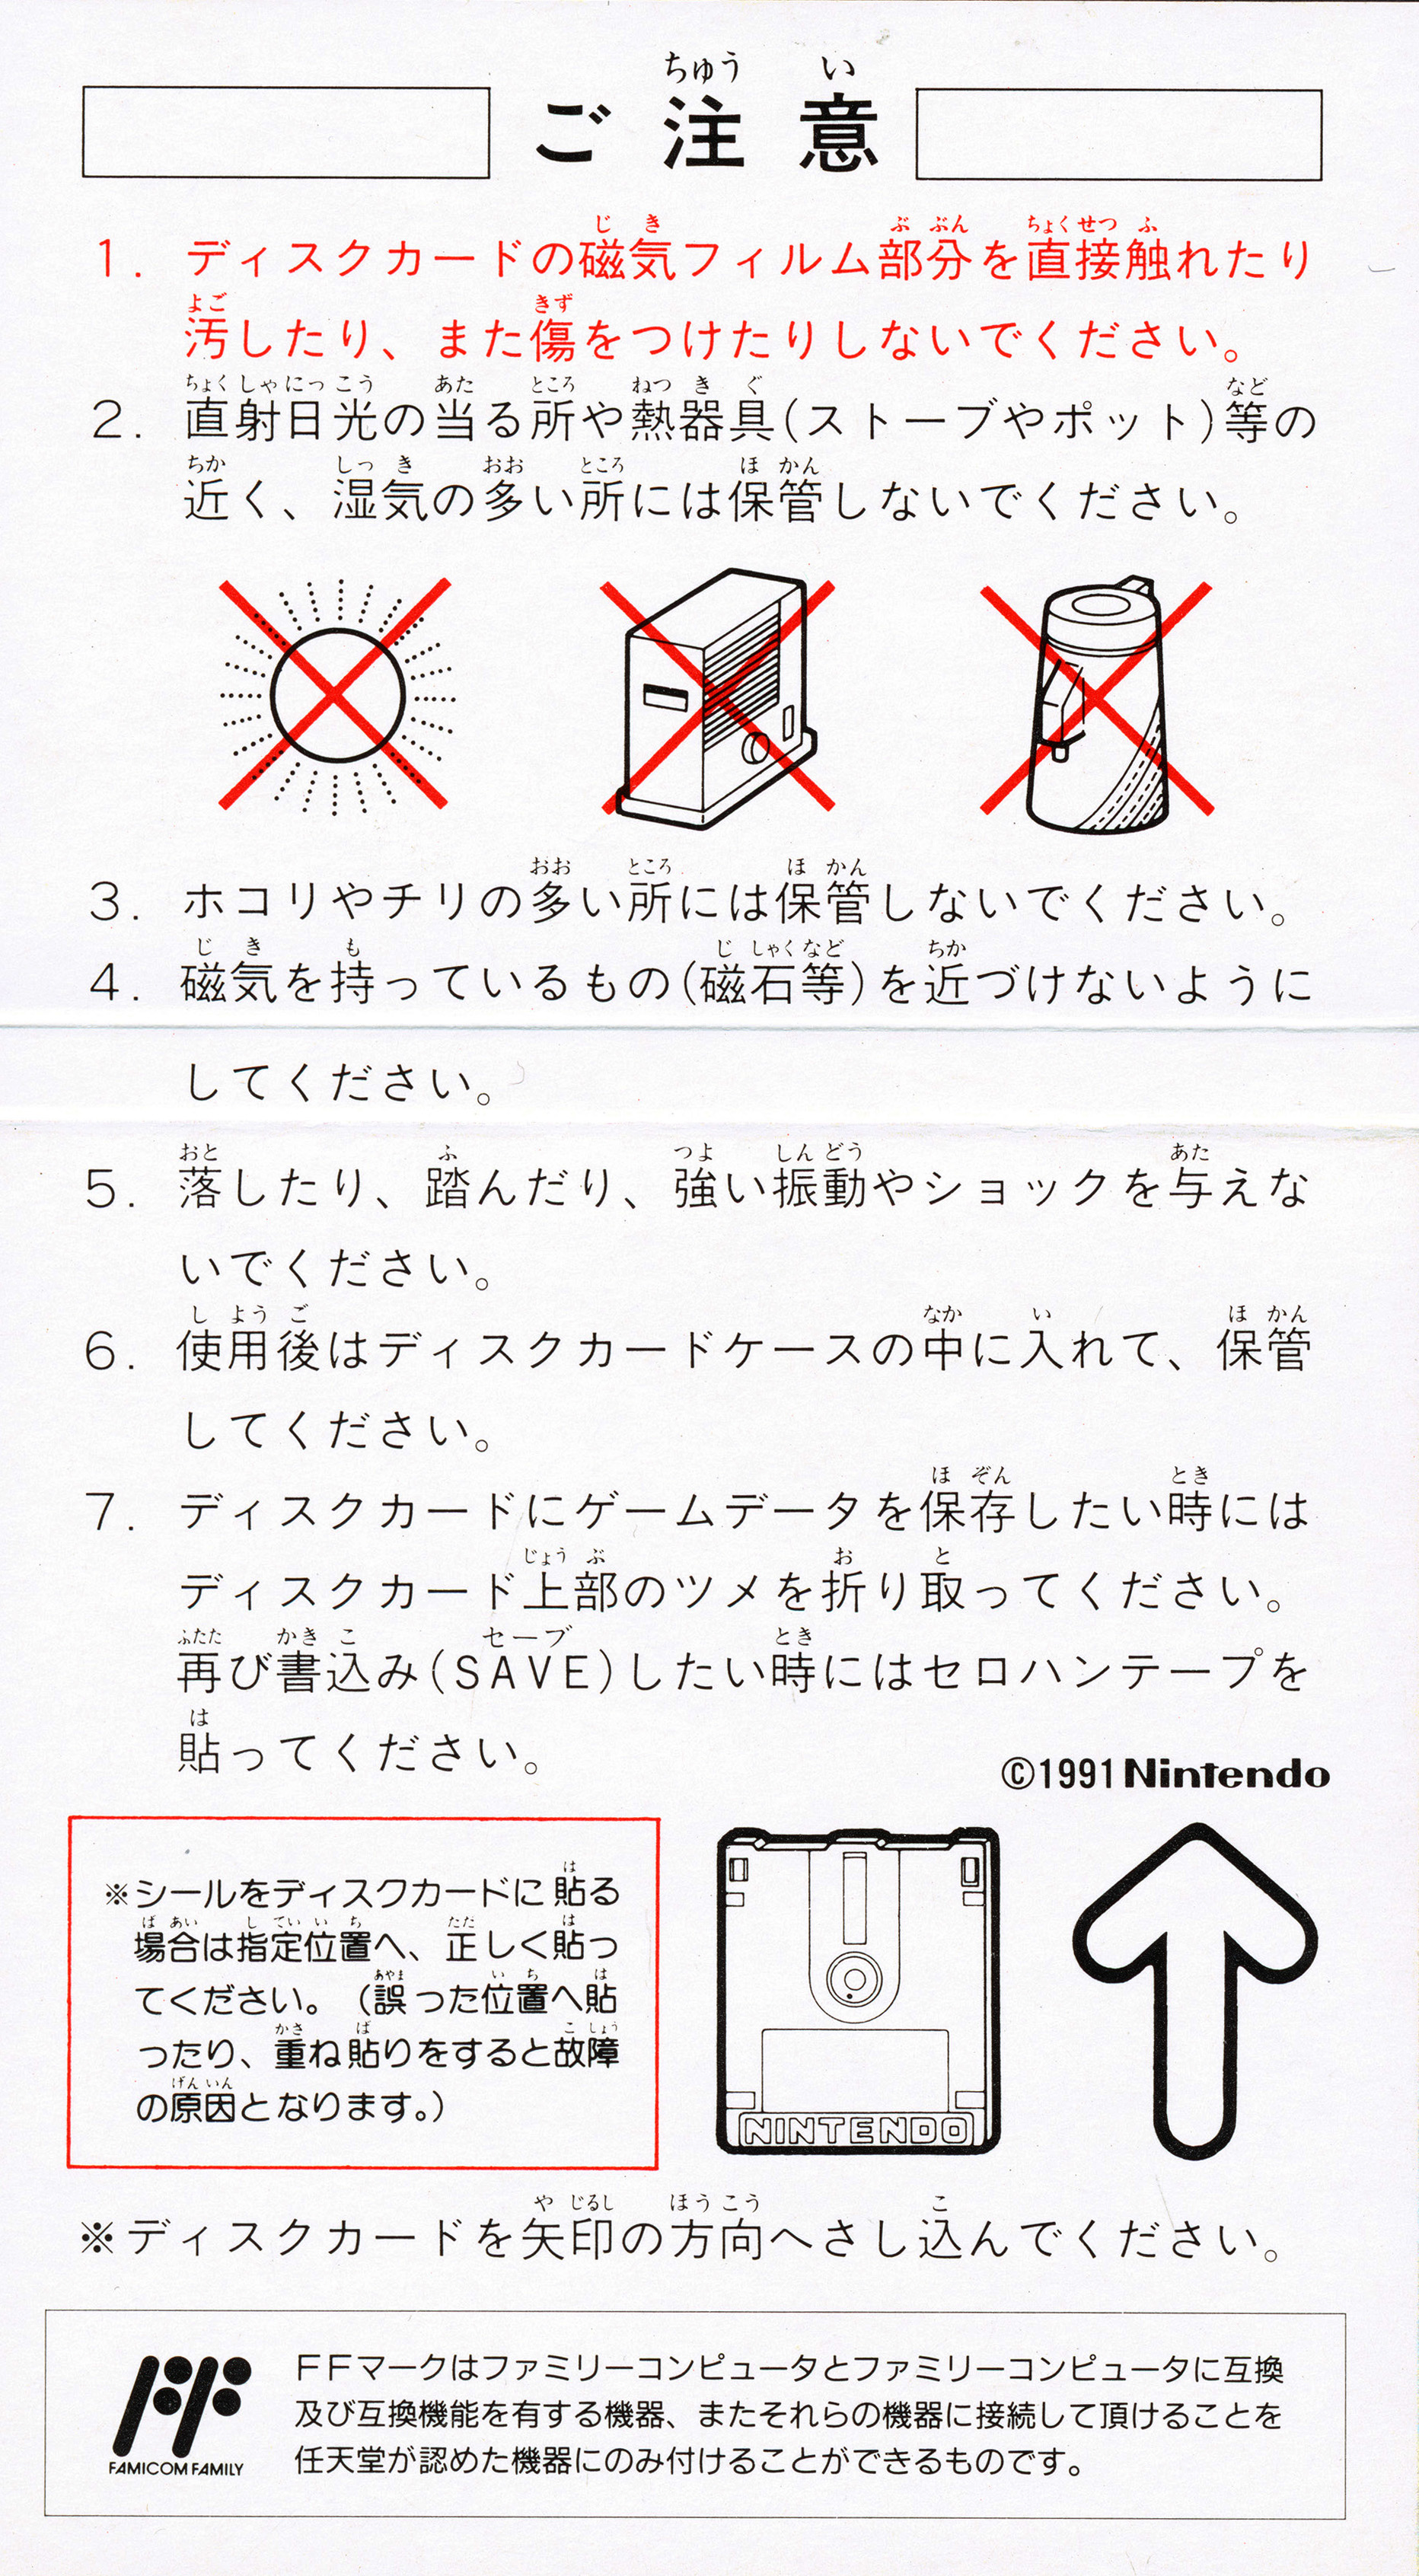 ご注意
1. ディスクカードの磁気フィルム部分を直接触れたり
汚したり、また傷をつけたりしないでください。
2. 直射日光の当る所や熱器具(ストーブやポット)等の
近く、湿気の多い所には保管しないでください。
3. ホコリやチリの多い所には保管しないでください。
4. 磁気を持っているもの(磁石等)を近づけないように
してください。
5. 落したり、踏んだり、強い振動やショックを与えな
いでください。
6. 使用後はディスクカードケースの中に入れて、保管
してください。
7. ディスクカードにゲームデータを保存したい時には
ディスクカード上部のツメを折り取ってください。
再び書込み(SAVE)したい時にはセロハンテープを
貼ってください。
©1991 Nintendo
※シールをディスクカードに貼る
場合は指定位置へ、正しく貼っ
てください。(誤った位置へ貼
ったり、重ね貼りをすると故障
の原因となります。)
NINTENDO
※ディスクカードを矢印の方向へさし込んでください。
FFマークはファミリーコンピュータとファミリーコンピュータに互換
及び互換機能を有する機器、またそれらの機器に接続して頂けることを
任天堂が認めた機器にのみ付けることができるものです。
FAMICOM FAMILY